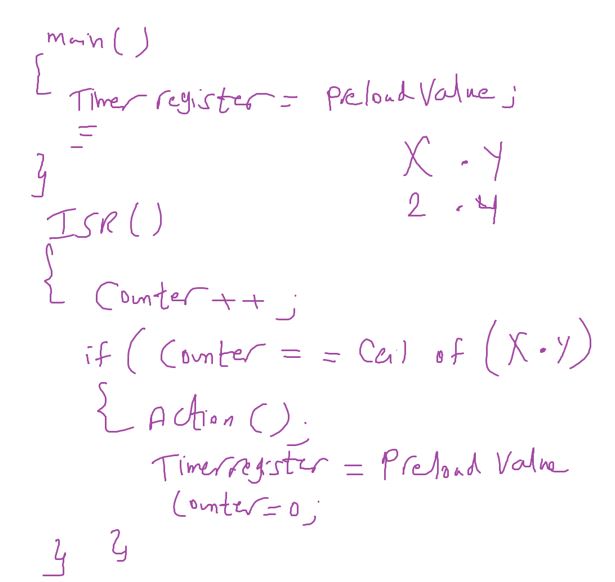 main()
{
Timer register = Preload Value;
=
}
X . Y
2 . 4
ISR()
{
Counter++;
if ( Counter == Ceil of (X.Y)
{ Action();
Timerregister = Preload Value
Counter=0;
} }